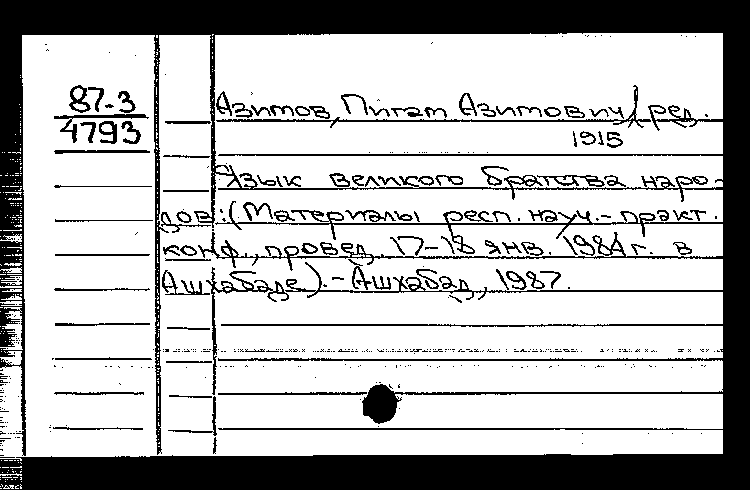 87-3
4793
Азимов, Пигам Азимович, ред.
1915
Язык великого братства наро-
дов: (Материалы респ. науч.-практ.
конф., провед. 17-18 янв. 1984 г. в
Ашхабаде). - Ашхабад, 1987.